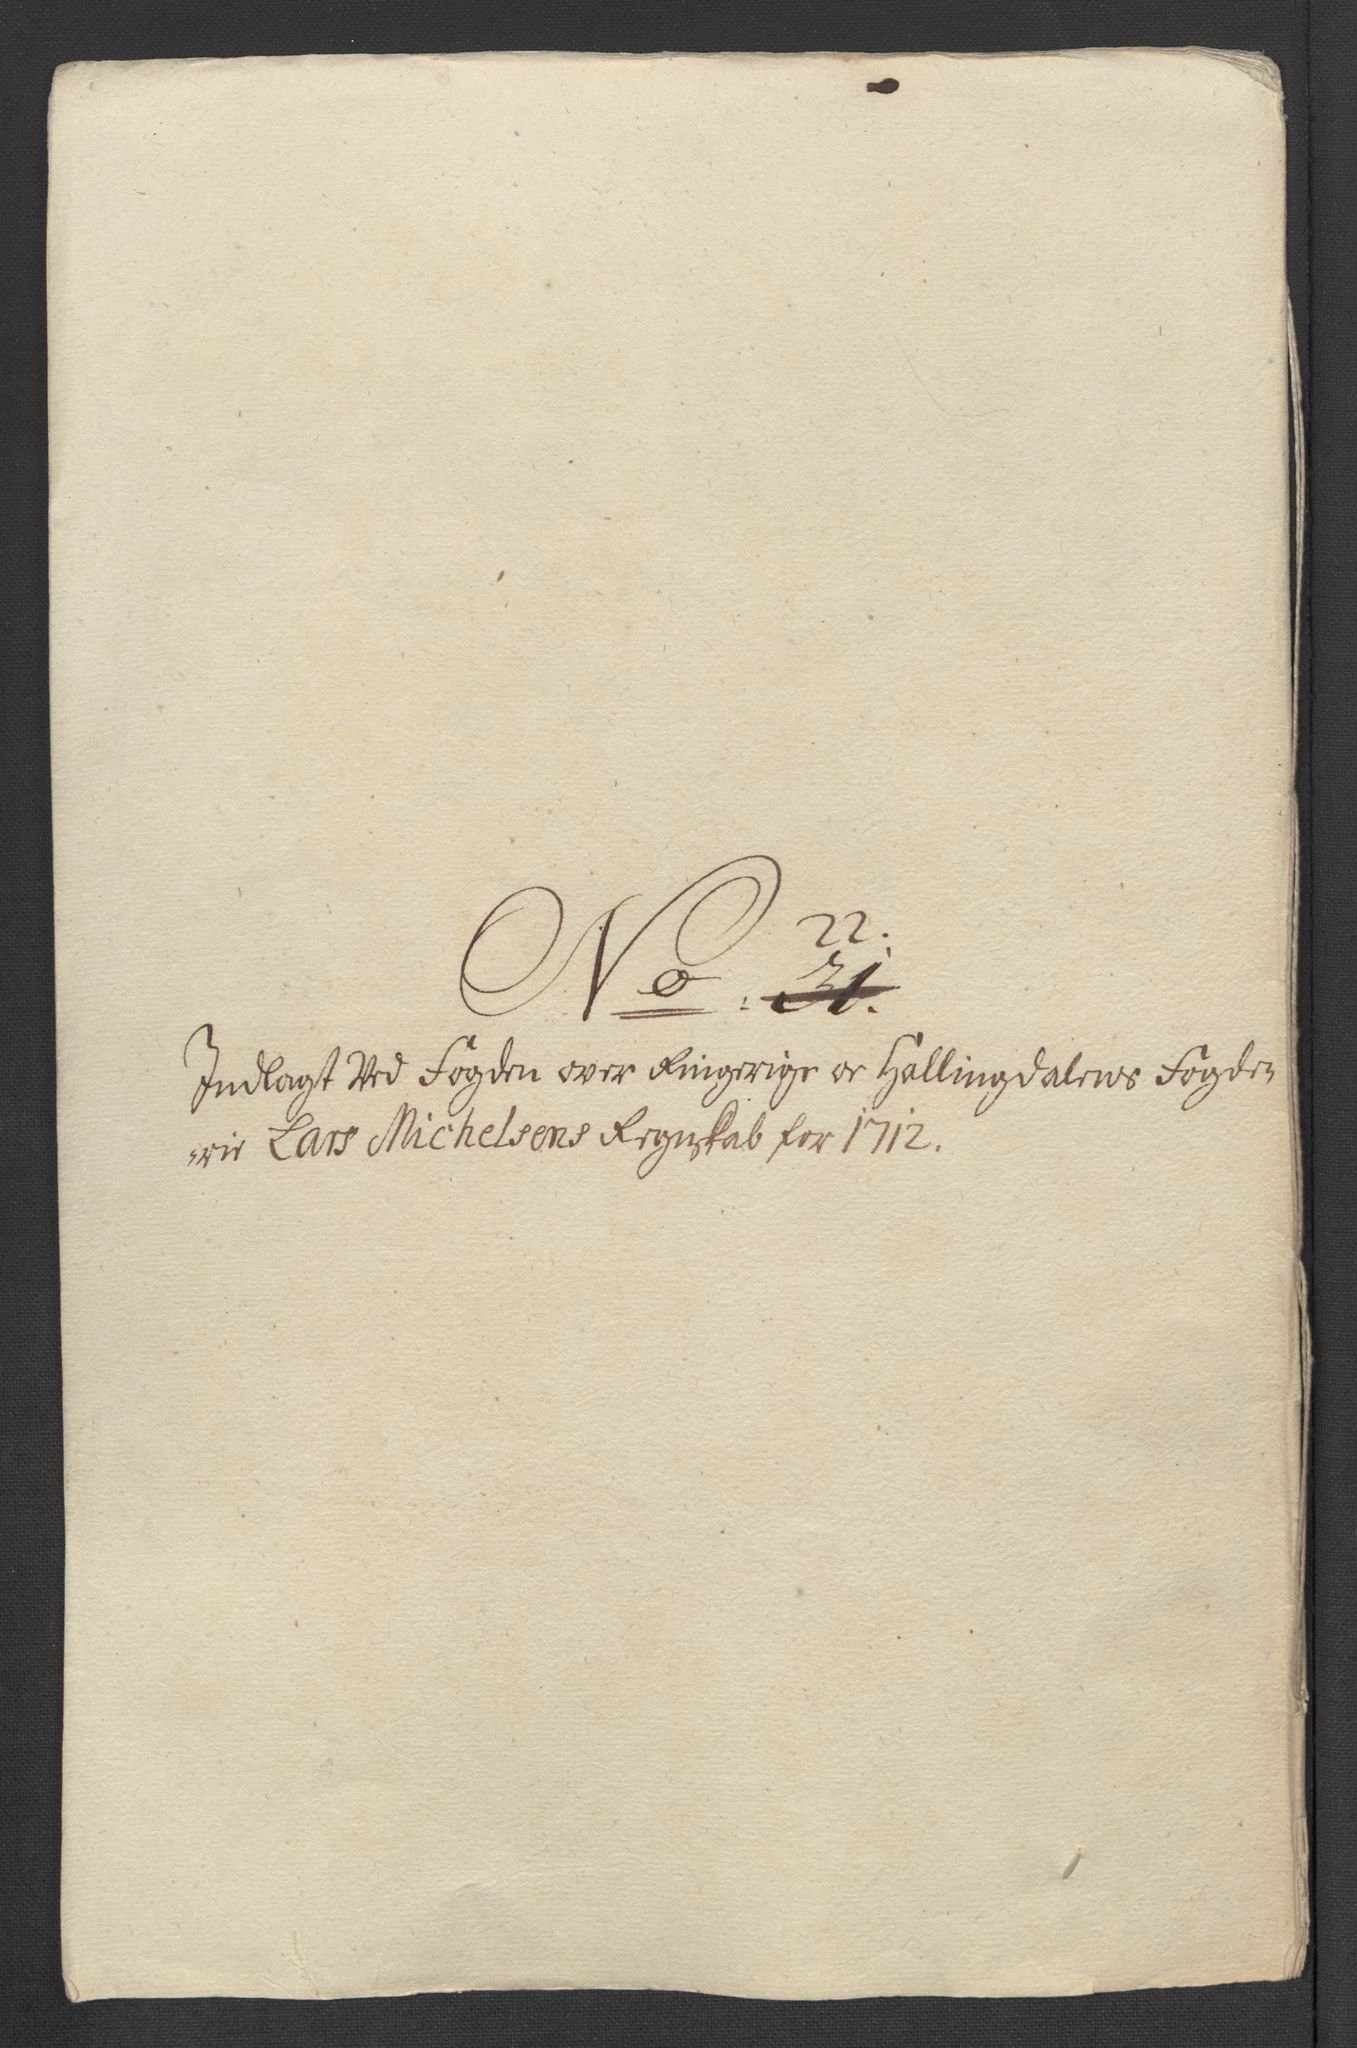 22.
No: 31.
Indlagt Ved Fogden over Ringerige oc Hallingdalens Fogde=
=rie Lars Michelsens Regnskab for 1712.